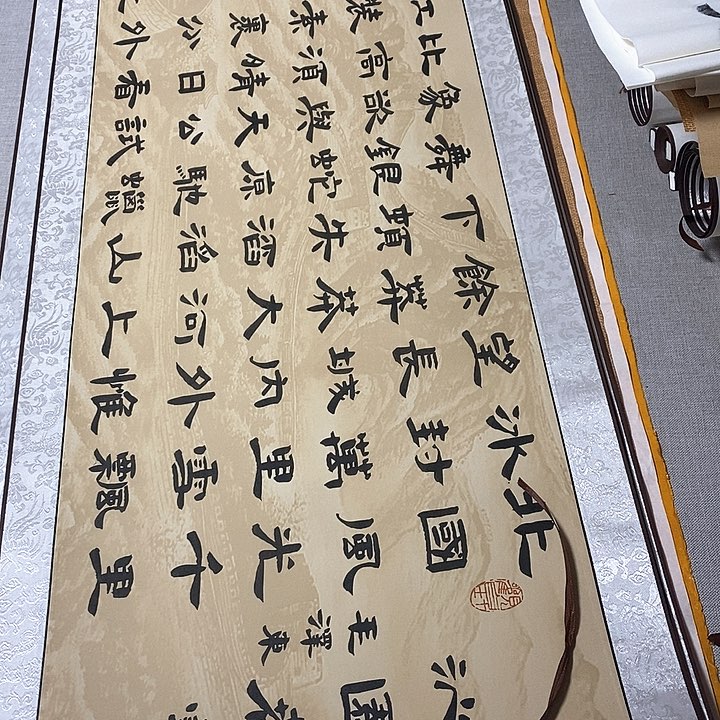 沁園春雪
毛澤東
北國風光千里
冰封萬里雪飄
望長城內外惟
餘莽莽大河上
下頓失滔滔山
舞銀蛇原馳蠟
象欲與天公試
比高須晴日看
裝素裹分外